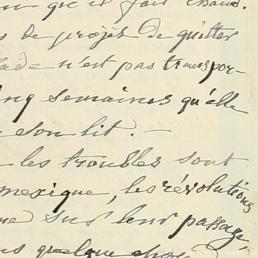 n que il fait chaud.
s de projet de quitter
lade n'est pas transpor-
inq semaines qu'elle
e son lit. —
les troubles sont
mexique, les révolutions
ue sur leur passage,
ns quelque chose